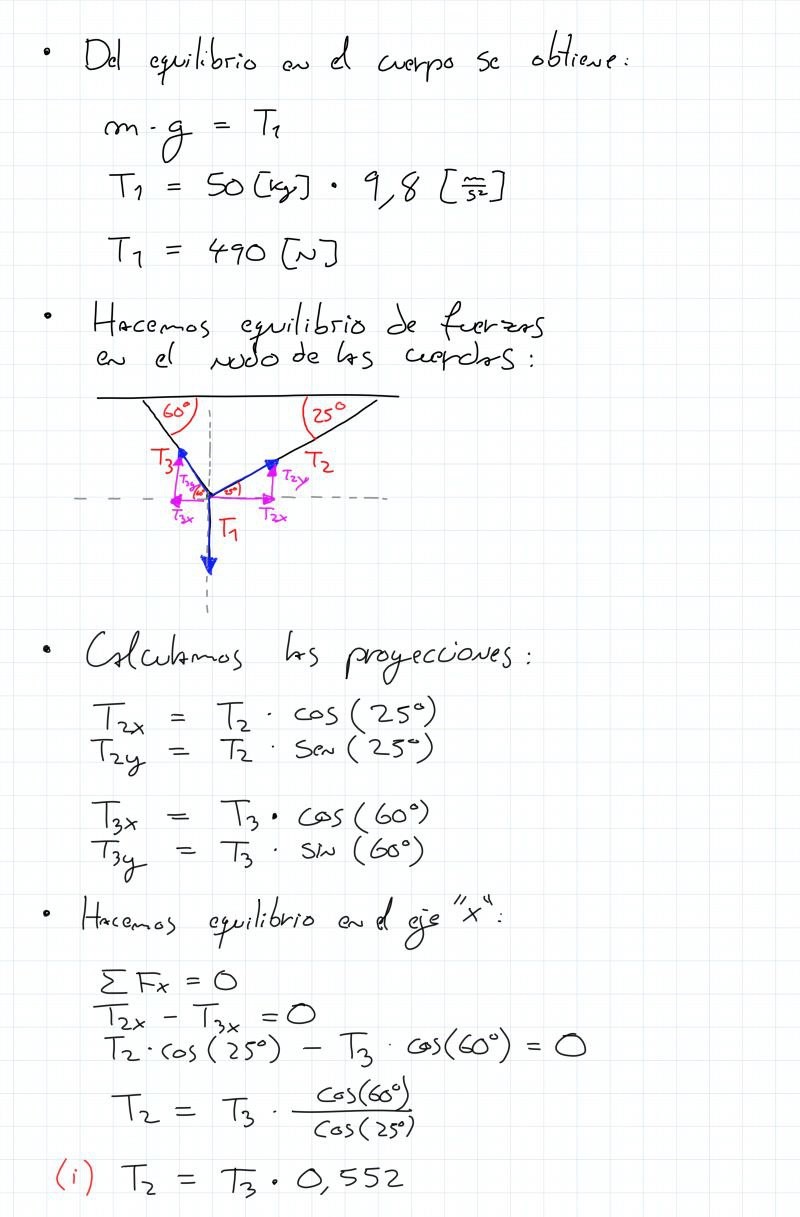 • Del equilibrio en el cuerpo se obtiene:
m · g = T1
T1 = 50 [kg] · 9,8 [m/s²]
T1 = 490 [N]
• Hacemos equilibrio de fuerzas
en el nudo de las cuerdas:
60° 25°
T3 T2
T3y 60° 25° T2y
T3x T2x
T1
• Calculamos las proyecciones:
T2x = T2 · cos(25°)
T2y = T2 · sen(25°)
T3x = T3 · cos(60°)
T3y = T3 · sin(60°)
• Hacemos equilibrio en el eje "x":
∑ Fx = 0
T2x - T3x = 0
T2 · cos(25°) - T3 · cos(60°) = 0
T2 = T3 · cos(60°)/cos(25°)
(i) T2 = T3 · 0,552